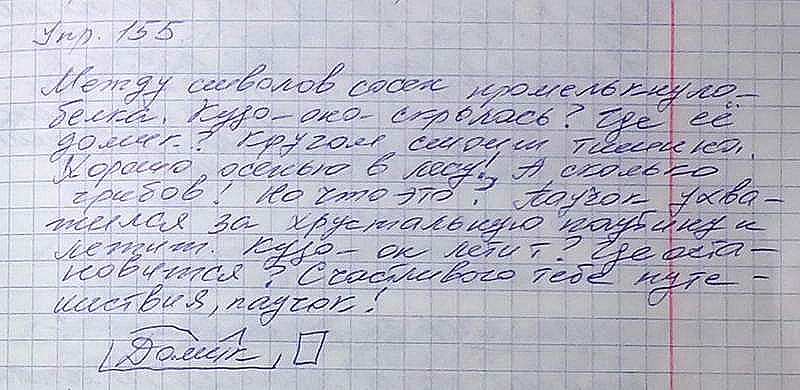 Упр. 155
Между стволов сосен промелькнула
белка. Куда она скрылась? Где её
домик? Кругом стоит тишина.
Хорошо осенью в лесу! А сколько
грибов! Но что это? Паучок ухва-
тился за хрустальную паутину и
летит. Куда он летит? Где оста-
новится? Счастливого тебе путе-
шествия, паучок!
Домик,